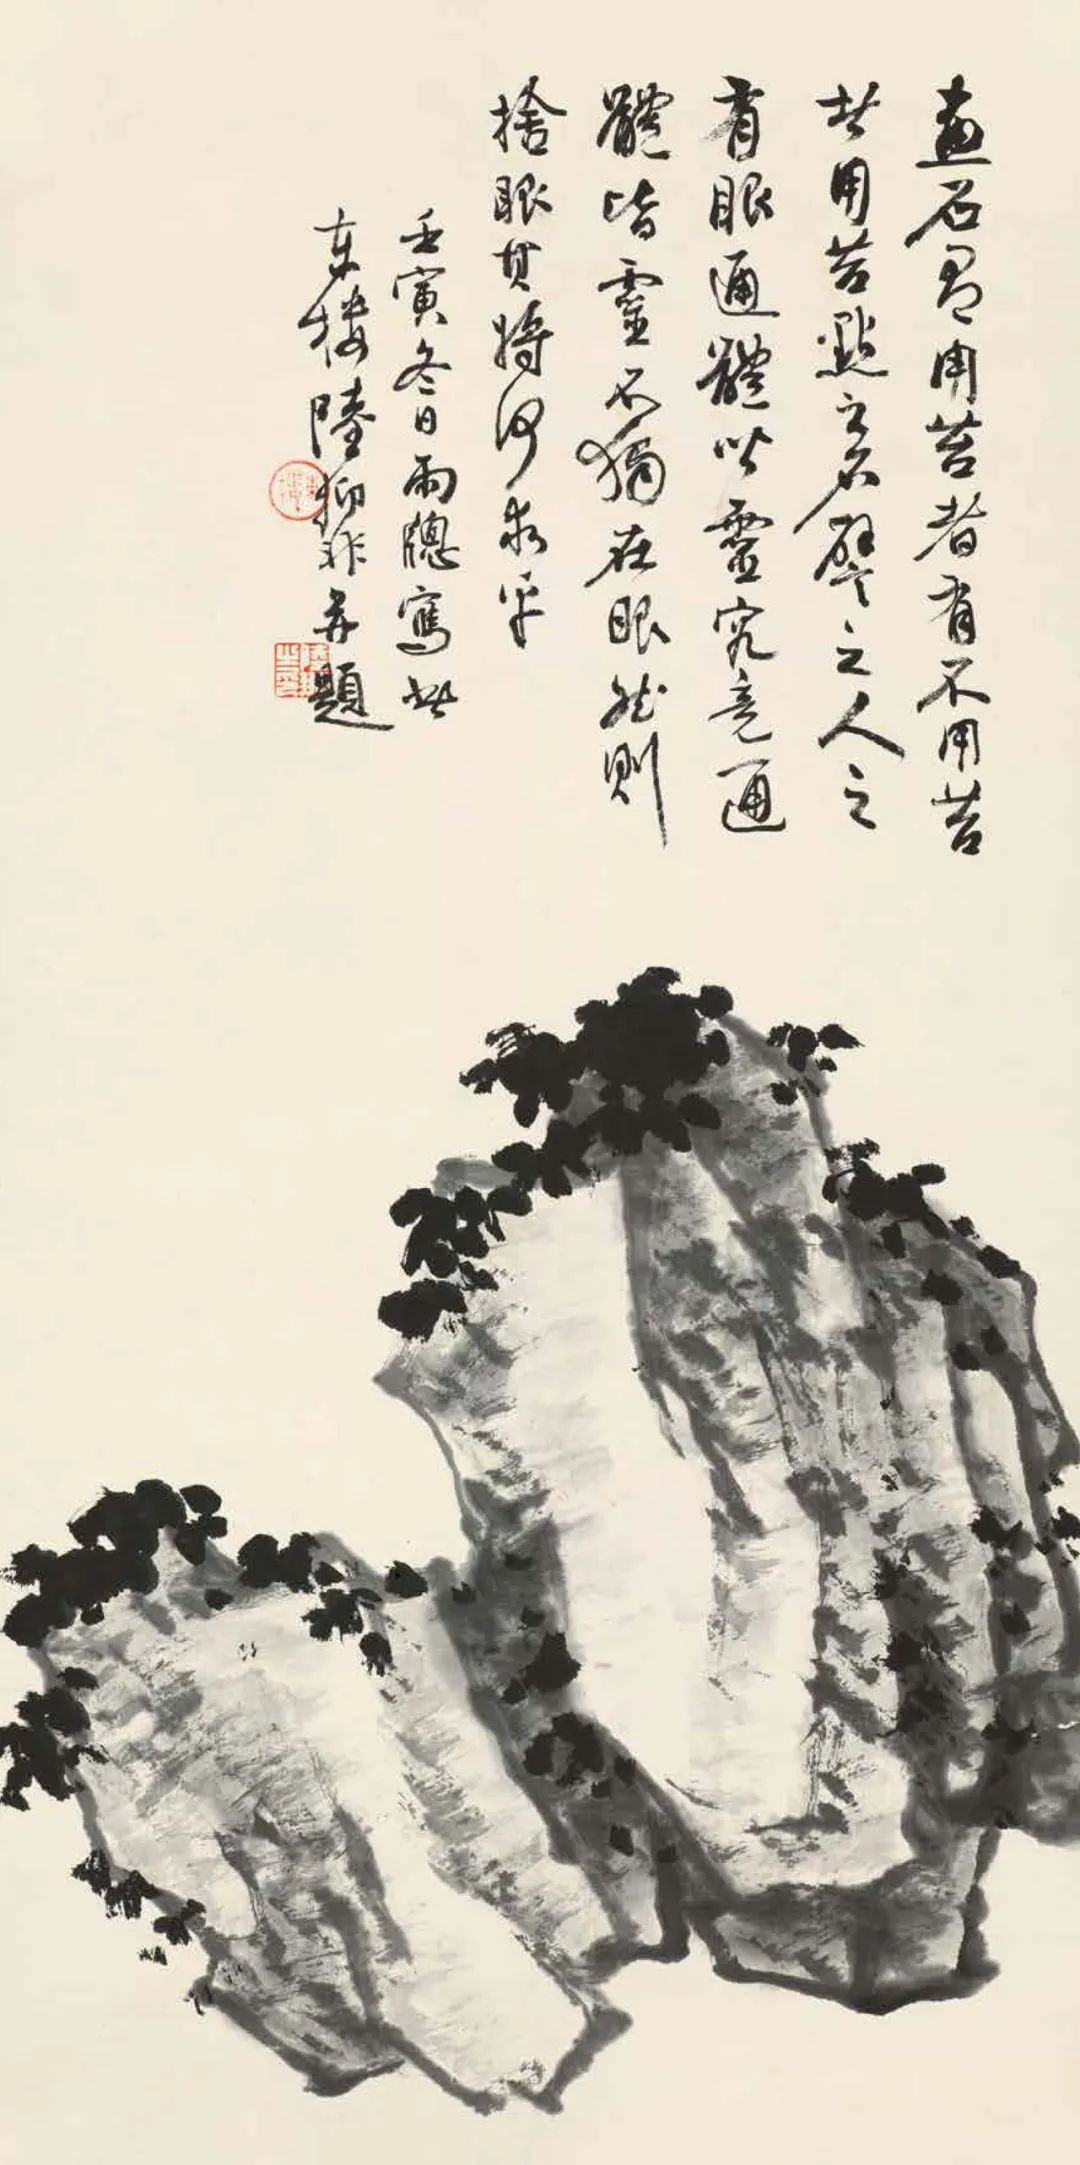 畫石有用苔者有不用苔
者用苔點之石譬之人之
有眼通體皆靈究竟通
體皆靈不獨在眼然則
捨眼其將何求乎
壬寅冬日雨牕寫於
東樓陸抑非并題